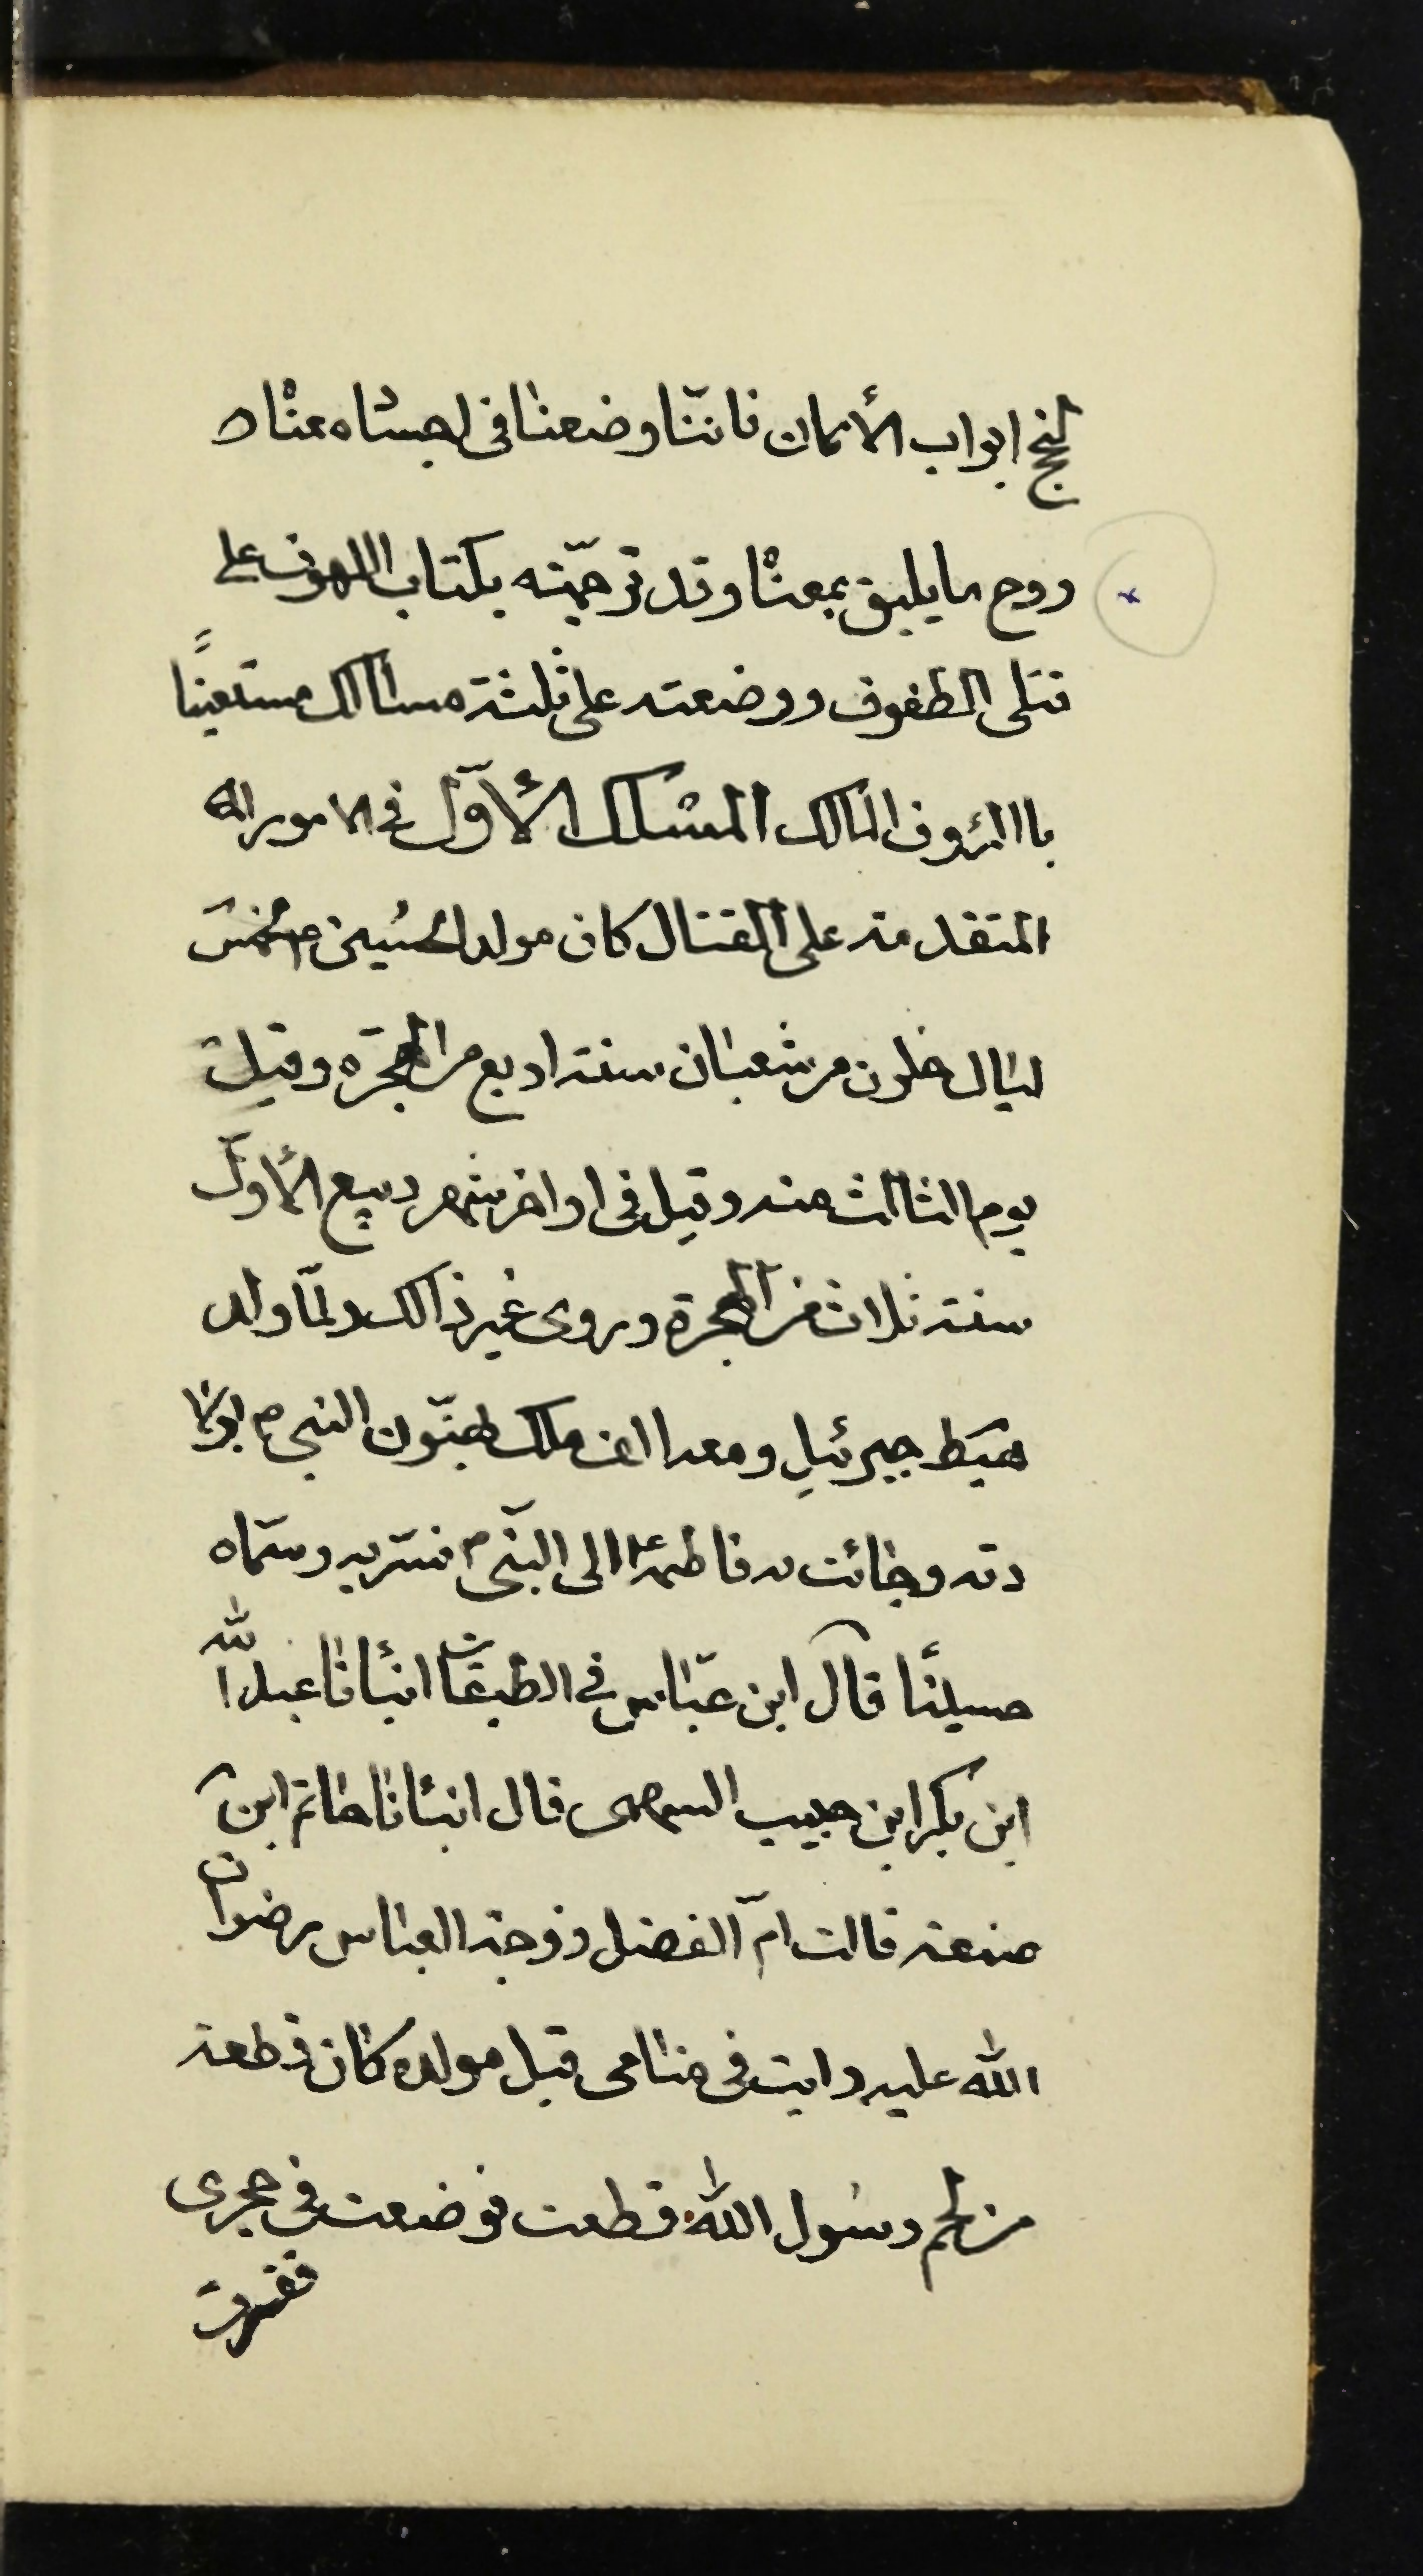 لنجح ابواب الأمان فاننّا وضعنا فی اجساه معناه
روح ما یلیق بمعناه و قد ترجمّته بکتاب اللهوف علی
قتلی الطفوف و وضعته علی ثلثة مسالک مستعینًا
باالرؤف المالک المسلک الأوّل فی الامور اله
المتقدمة علی القتال کان مولد الحسین ع لخمس
لیال خلون من شعبان سنة اربع من الهجرة و قیل
یوم الثالث منه و قیل فی اواخر شهر ربیع الأوّل
سنة ثلاث من الهجرة و روی غیر ذالک و لمّا ولد
هبط جبرئیل و معه الف ملک یهنّون النبی ص بولا
دته و جائت به فاطمة ع الی النبّی ص فسّر به و سمّاه
حسینًا قال ابن عبّاس فی الطبقات انبأنا عبد الله
ابن بکر ابن حبیب السهمی قال انبئانا حاتم ابن
صنعة قالت امّ الفضل زوجة العباس رضوان
الله علیه رایت فی منامی قبل مولده کان قطعة
من لحم رسول الله قطعت فوضعت فی حجری
ففسرت